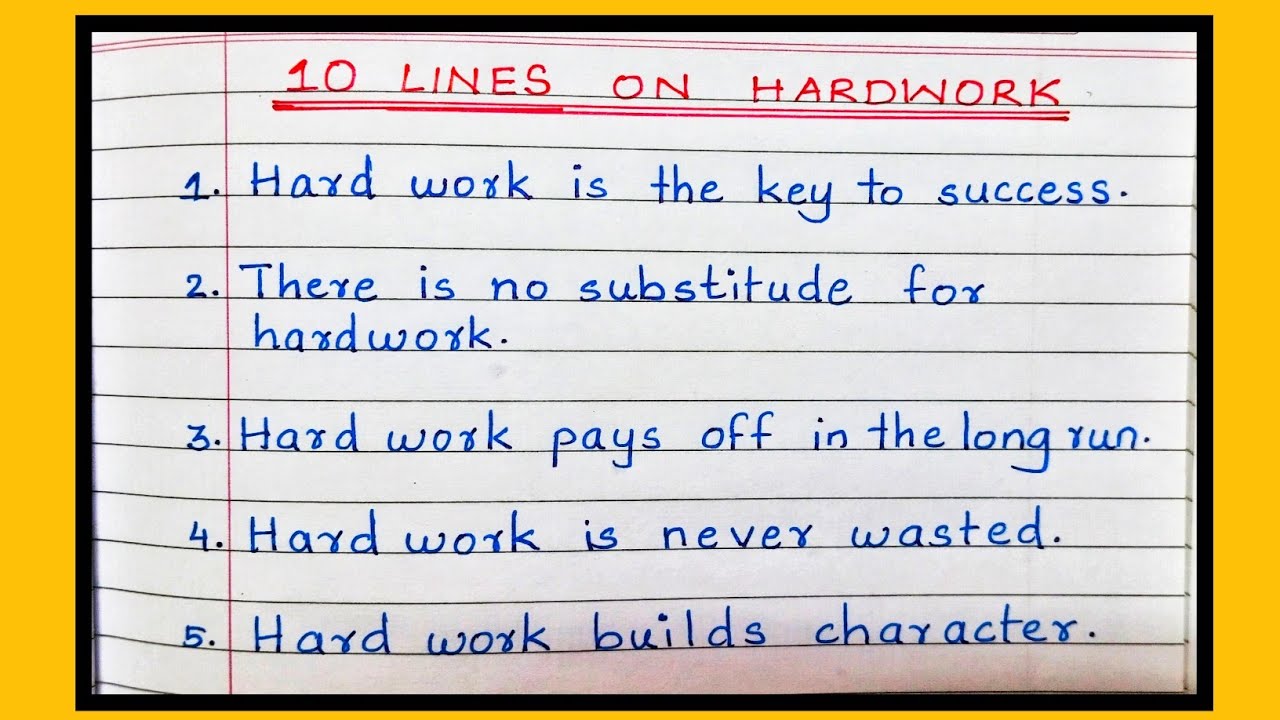 10 LINES ON HARDWORK
1. Hard work is the key to success.
2. There is no substitude for
hardwork.
3. Hard work pays off in the long run.
4. Hard work is never wasted.
5. Hard work builds character.